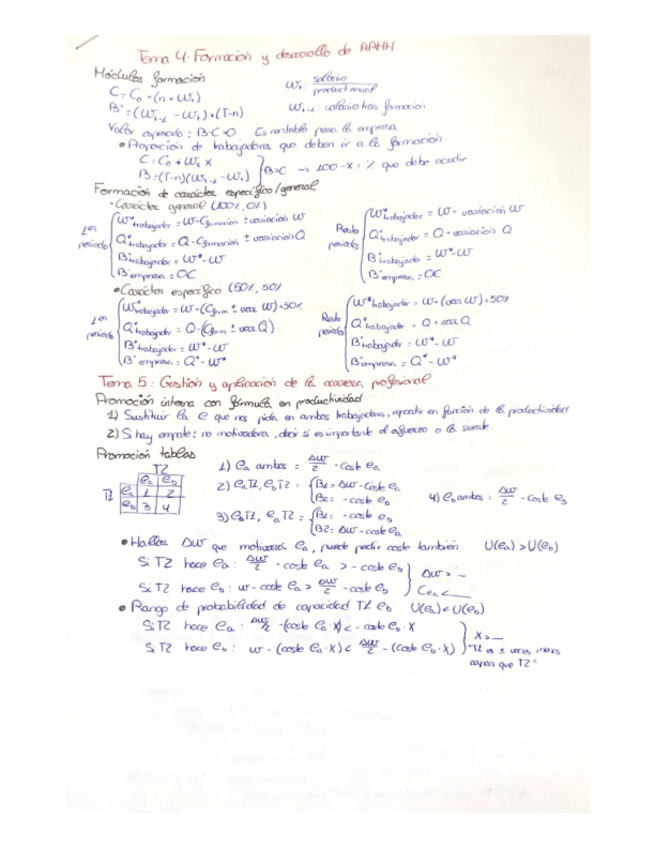 Tema 4. Formación y desarrollo de RRHH
Módulos formación
C = C₀ + (n · W₁)
W₁: salario / product anual
B = (W₁₋₂ - W₁) · (T-n)
W₁₋₂: salario tras formación
Valor esperado: B-C>0 Es rentable para la empresa
• Proporción de trabajadores que deben ir a la formación
C = C₀ + W₁ x
B = (T-n)(W₁₋₂ - W₁) } B=C → 100-x = % que debe acudir
Formación de carácter específico/general
• Carácter general (100%, 0%)
1er periodo
W*trabajador = W - Cformación ± variación W
Q*trabajador = Q - Cformación ± variación Q
B trabajador = W* - W
B empresa = 0€
Resto periodo
W*trabajador = W + variación W
Q*trabajador = Q + variación Q
B trabajador = W* - W
B empresa = 0€
• Carácter específico (50%, 50%)
1er periodo
W*trabajador = W - (Cform ± var W) · 50%
Q*trabajador = Q - (Cform ± var Q)
B trabajador = W* - W
B empresa = Q* - W*
Resto periodo
W*trabajador = W + (var W) · 50%
Q*trabajador = Q + var Q
B trabajador = W* - W
B empresa = Q* - W*
Tema 5: Gestión y aplicación de la carrera profesional
Promoción interna con fórmula en productividad
1) Sustituir la e que nos pida en ambos trabajadores, repartir en función de la productividad
2) Si hay empate: no motivadora, decir si es importante el esfuerzo o la suerte
Promoción tablas
T2
eₐ e_b
T1 eₐ 1 2
e_b 3 4
1) eₐ ambos = ΔW/2 - coste eₐ
2) eₐT1, e_bT2 = { B1 = ΔW - coste eₐ
B2 = - coste e_b
3) e_bT1, eₐT2 = { B1 = - coste e_b
B2 = ΔW - coste eₐ
4) e_b ambos = ΔW/2 - coste e_b
• Hallar ΔW que motivará eₐ, puede pedir coste también U(eₐ) > U(e_b)
Si T2 hace eₐ: ΔW/2 - coste eₐ > - coste e_b
Si T2 hace e_b: W - coste eₐ > ΔW/2 - coste e_b
} ΔW > _
Ceₐ < _
• Rango de probabilidad de capacidad T1 e_b U(eₐ) < U(e_b)
Si T2 hace eₐ: ΔW/2 - (coste eₐ · x) < - coste e_b · x
Si T2 hace e_b: W - (coste eₐ · x) < ΔW/2 - (coste e_b · x)
} x > _
"T1 es x veces menos capaz que T2"